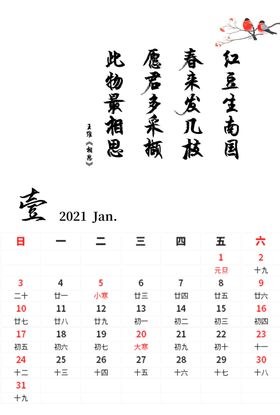 红豆生南国
春来发几枝
愿君多采撷
此物最相思
王维《相思》
壹 2021 Jan.
日 一 二 三 四 五 六
1 2
元旦 十九
3 4 5 6 7 8 9
二十 廿一 小寒 廿三 廿四 廿五 廿六
10 11 12 13 14 15 16
廿七 廿八 廿九 初一 初二 初三 初四
17 18 19 20 21 22 23
初五 初六 初七 大寒 初九 初十 十一
24 25 26 27 28 29 30
十二 十三 十四 十五 十六 十七 十八
31
十九